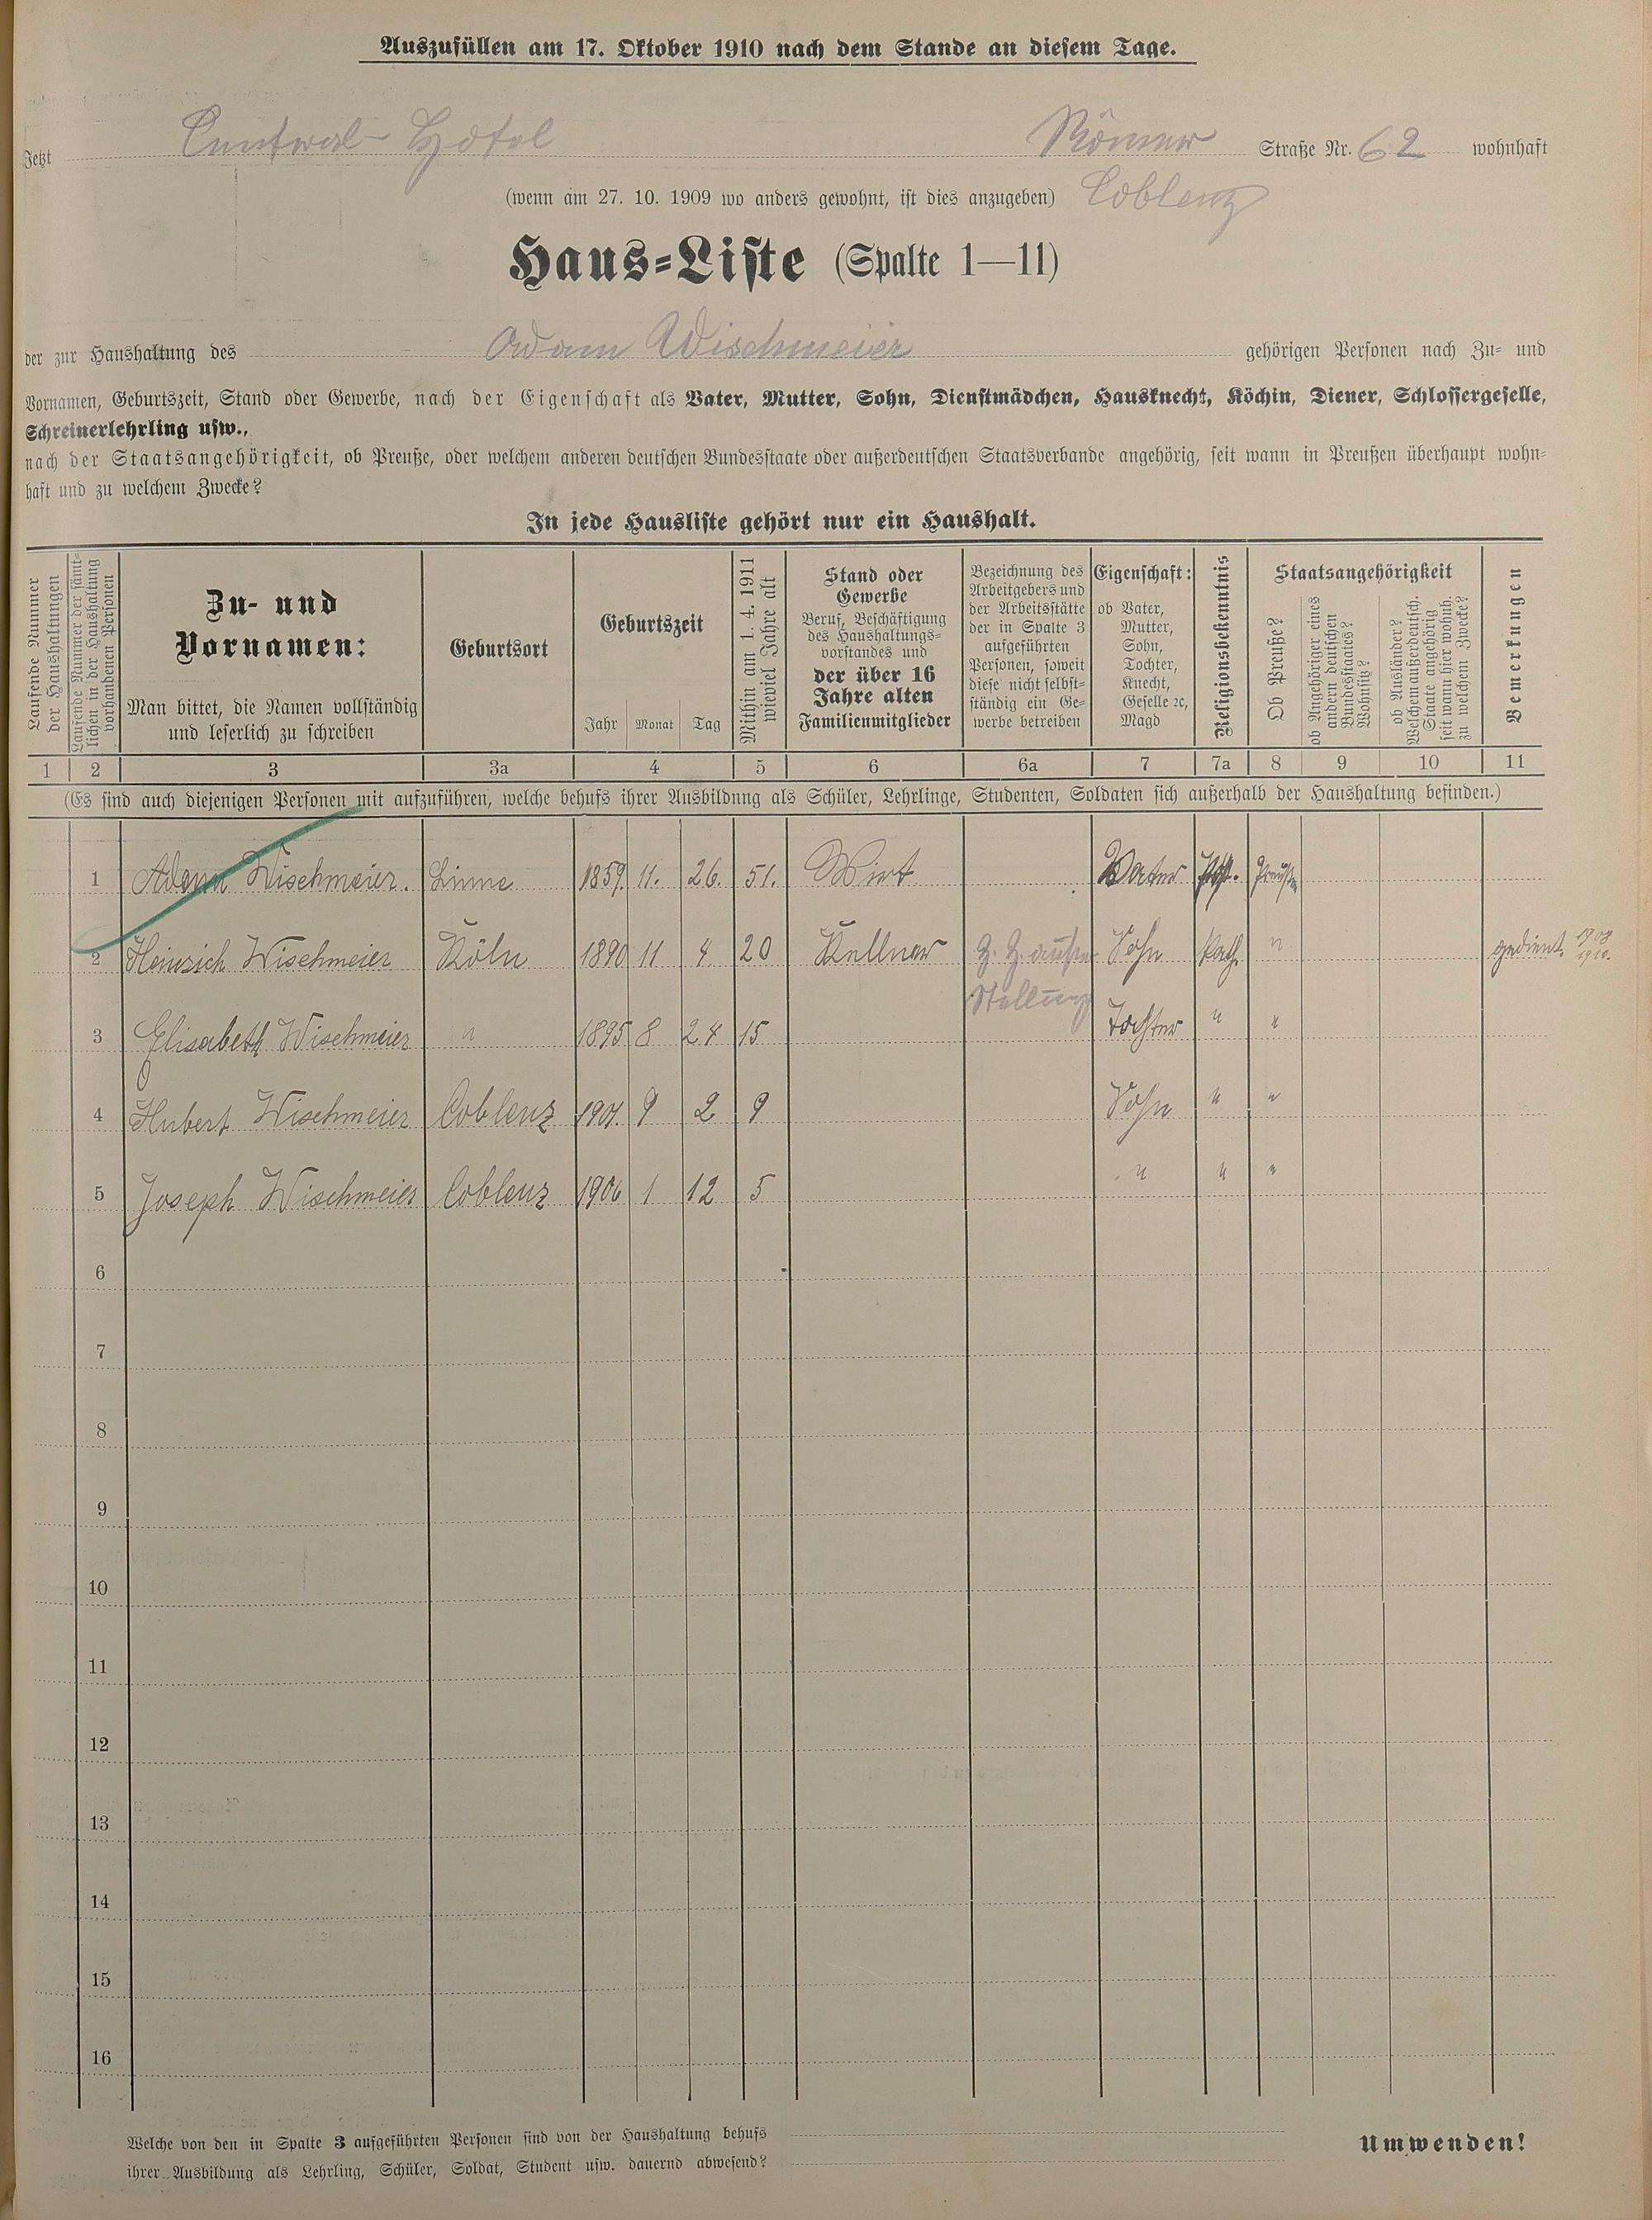 Auszufüllen am 17. Oktober 1910 nach dem Stande an diesem Tage.
Jetzt Central Hotel Römer Straße Nr. 62 wohnhaft
(wenn am 27. 10. 1909 wo anders gewohnt, ist dies anzugeben) Coblenz
Haus-Liste (Spalte 1—11)
der zur Haushaltung des Adam Wischmeier gehörigen Personen nach Zu- und
Vornamen, Geburtszeit, Stand oder Gewerbe, nach der Eigenschaft als Vater, Mutter, Sohn, Dienstmädchen, Hausknecht, Köchin, Diener, Schlossergeselle,
Schreinerlehrling usw.,
nach der Staatsangehörigkeit, ob Preuße, oder welchem anderen deutschen Bundesstaate oder außerdeutschen Staatsverbande angehörig, seit wann in Preußen überhaupt wohn-
haft und zu welchem Zwecke?
In jede Hausliste gehört nur ein Haushalt.
Laufende Nummer
der Haushaltungen
Laufende Nummer der sämt-
lichen in der Haushaltung
vorhandenen Personen
Zu- und
Vornamen:
Man bittet, die Namen vollständig
und leserlich zu schreiben
Geburtsort
Geburtszeit
Jahr Monat Tag
Mithin am 1. 4. 1911
wieviel Jahre alt
Stand oder
Gewerbe
Beruf, Beschäftigung
des Haushaltungs-
vorstandes und
der über 16
Jahre alten
Familienmitglieder
Bezeichnung des
Arbeitgebers und
der Arbeitsstätte
der in Spalte 3
aufgeführten
Personen, soweit
diese nicht selbst-
ständig ein Ge-
werbe betreiben
Eigenschaft:
ob Vater,
Mutter,
Sohn,
Tochter,
Knecht,
Geselle ꝛc,
Magd
Religionsbekenntnis
Staatsangehörigkeit
Ob Preuße?
ob Angehöriger eines
andern deutschen
Bundesstaates?
Wohnsitz?
ob Ausländer?
Welchem außerdeutsch.
Staate angehörig
seit wann hier wohnh.
zu welchem Zwecke?
Bemerkungen
1 2 3 3a 4 5 6 6a 7 7a 8 9 10 11
(Es sind auch diejenigen Personen mit aufzuführen, welche behufs ihrer Ausbildung als Schüler, Lehrlinge, Studenten, Soldaten sich außerhalb der Haushaltung befinden.)
1 Adam Wischmeier. Linne 1859. 11. 26. 51. Wirt Vater
2 Heinrich Wischmeier Köln 1890 11 4. 20 Kellner z. Z. außer Stellung Sohn Kath. " gedient. 1908 1910.
3 Elisabeth Wischmeier " 1895 8 24 15 Tochter " "
4 Hubert Wischmeier Coblenz 1901. 9 2 9 Sohn " "
5 Joseph Wischmeier Coblenz 1906 1 12 5 " " "
6
7
8
9
10
11
12
13
14
15
16
Welche von den in Spalte 3 aufgeführten Personen sind von der Haushaltung behufs
ihrer Ausbildung als Lehrling, Schüler, Soldat, Student usw. dauernd abwesend?
Umwenden!